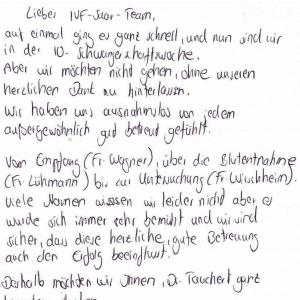 Liebes IVF-Saar-Team,
auf einmal ging es ganz schnell, und nun sind wir
in der 10. Schwangerschaftswoche.
Aber wir möchten nicht gehen, ohne unseren
herzlichen Dank zu hinterlassen.
Wir haben uns ausnahmslos von jedem
außergewöhnlich gut betreut gefühlt.
Vom Empfang (Fr. Wagner), über die Blutentnahme
(Fr. Lühmann) bis zur Untersuchung (Fr. 
Viele Namen wissen wir leider nicht aber es
wurde sich immer sehr bemüht und wir sind
sicher, dass diese herzliche, gute Betreuung
auch den Erfolg beeinflusst.
Deshalb möchten wir Ihnen, Dr. Tauchert ganz